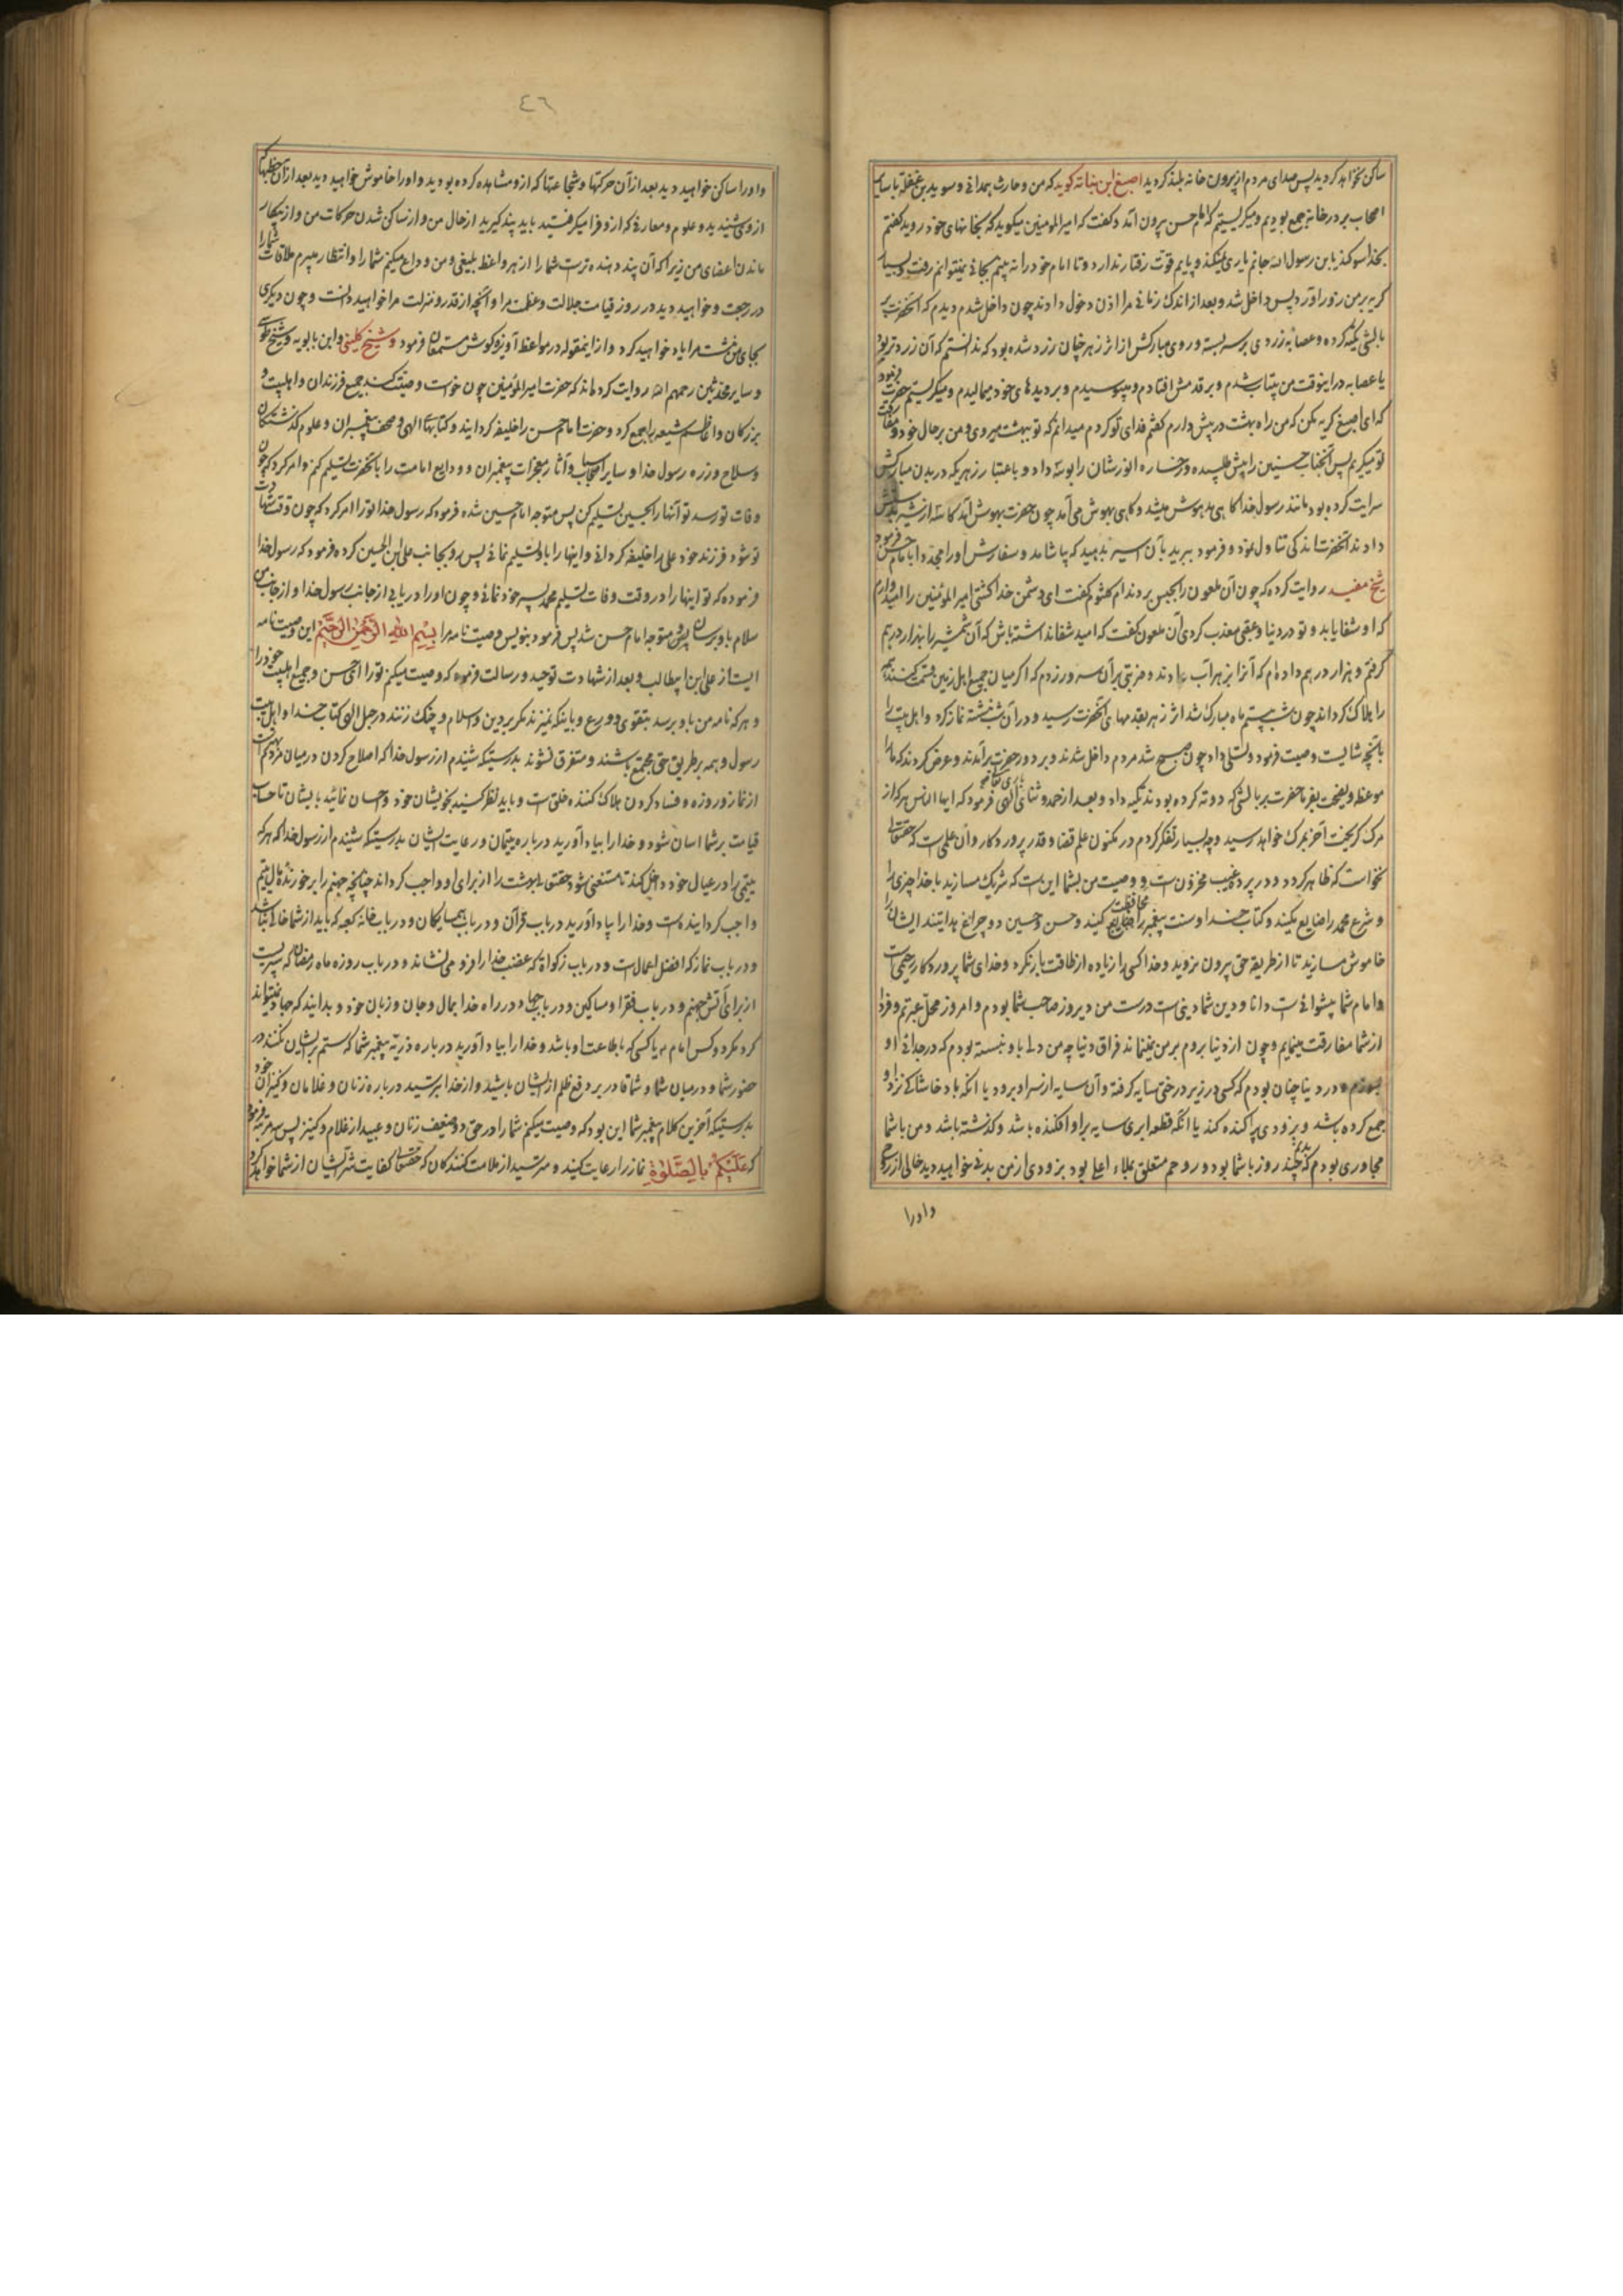 ساکن نخواهد کردید پس صدای مردم از بیرون خانه بلند کردید اصبغ ابن بناته کوید که من و حارث همدانی و سوید بن غفله با سایر
اصحاب بر در خانه جمع بودیم و میکریستیم که امام حسن بیرون آمد و کفت که امیرالمومنین میکوید که بخانهای خود روید کفتم
بخدا سوکند یابن رسول الله جانم یاری نمیکند و پایم قوت رفتار ندارد و تا امام خود را نه بینم بجائی نمیتوانم رفت و بسیار
کریه بر من زور آورد پس داخل شد و بعد از اندک زمانی مرا اذن دخول دادند چون داخل شدم دیدم که آنحضرت بر
بالشی تکیه کرده و عصابه زردی بر سر بسته و روی مبارکش از اثر زهر چنان زرد شده بود که ندانستم که آن زردتر بود
یا عصابه در اینوقت من بیتاب شدم و بر قدمش افتادم و میبوسیدم و بر دیدهای خود میمالیدم و میکریستم حضرت فرمود
که ای اصبغ کریه مکن که من راه بهشت در پیش دارم کفتم فدای تو کردم میدانم که تو ببهشت میروی و من بر حال خود و مفارقت
تو میکریم پس آنجناب حسنین را پیش طلبیده و رخساره انورشان را بوسه داد و باعتبار زهریکه در بدن مبارکش
سرایت کرده بود مانند رسول خدا کاهی مدهوش میشد و کاهی بهوش می آمد چون حضرت بهوش آمد کاسه از شیر بدستش
دادند آنحضرت اندکی تناول نمود و فرمود ببرید بآن اسیر بدهید که بیاشامد و سفارش او را مجددا بامام حسن فرمود
شیخ مفید روایت کرده که چون آن ملعون را بحبس بردند ام کلثوم کفت ای دشمن خدا کشتی امیرالمؤمنین را امیدوارم
که او شفا یابد و تو در دنیا و عقبی معذب کردی آن ملعون کفت که امید شفا نداشته باش که آن شمشیر را بهزار درهم
کرفتم و هزار درهم داده ام که آنرا بزهر آب دادند و ضربتی بر آن سرور زدم که اکر میان جمیع اهل زمین قسمت کنند همه
را هلاک کرداند چون شب بیستم ماه مبارک شد اثر زهر بقدمهای آنحضرت رسید و در آن شب نشسته نماز کرد و اهل بیت را
بآنچه شایست وصیت فرمود و تسلی داد چون صبح شد مردم داخل شدند و بر دور حضرت برآمدند و عرض کردند که ما را
موعظه و نصیحت بفرما حضرت بر بالشی که دوته کرده بودند تکیه داد و بعد از حمد و ثنای الهی فرمود که ایها الناس هرکه از
مرک کریخت آخر بمرک خواهد رسید و چه بسیار تفکر کردم در مکنون علم قضا و قدر پروردکار و آن علمی است که حقتعالی
نخواست که ظاهر کردد و در پرده غیب مخزون است و وصیت من بشما این است که شریک مسازید با خدا چیزی را
و شرع محمد را ضایع مکنید و کتاب خدا و سنت پیغمبر را محافظت کنید و حسن و حسین دو چراغ هدایتند ایشان را
خاموش مسازید تا از طریقه حق بیرون مروید و خدا کسی را زیاده از طاقت بار نکرده و خدای شما پروردکار رحیمی است
و امام شما پیشوائی است دانا و دین شما دینی است درست من دیروز صاحب شما بودم و امروز محل عبرتم و فردا
از شما مفارقت مینمایم و چون از دنیا بروم بر من نمینماید فراق دنیا چه من دلی باو نبسته بودم که در جدائی او
بسوزم در دنیا چنان بودم که کسی در زیر درختی سایه کرفته و آن سایه از سر او برود یا آنکه باد خاشاکی نزد او
جمع کرده باشد و بزودی پراکنده کند یا آنکه قطعه ابری سایه بر او افکنده باشد و کذشته باشد و من با شما
مجاوری بودم که بدنم چند روز با شما بود و روحم متعلق بملاء اعلی بود بزودی از من بدنی خواهید دید خالی از روح
و او را
٤٦
و او را ساکن خواهید دید بعد از آن حرکتها و شجاعتها که از و مشاهده کرده بودید و او را خاموش خواهید دید بعد از آن خطبها که
از وی شنیدید و علوم و معارفی که از و فرا میکرفتید باید پند کیرید از حال من و از ساکن شدن حرکات من و از بیکار
ماندن اعضای من زیرا که آن پند دهنده ترست شما را از هر واعظ بلیغی و من وداع میکنم شما را و انتظار میبرم ملاقات شما را
در رجعت و خواهید دید در روز قیامت جلالت و عظمت مرا و آنچه از قدر و منزلت مرا خواهید دانست و چون دیکری
بجای من نشست مرا یاد خواهید کرد و از اینمقوله در مواعظ آویزه کوش مستمعان فرمود و شیخ کلینی و ابن بابویه و شیخ طوسی
و سایر محدثین رحمهم الله روایت کرده اند که حضرت امیرالمؤمنین چون خواست وصیت کند جمیع فرزندان و اهلبیت و
بزرکان و اعاظم شیعه را جمع کرد و حضرت امام حسن را خلیفه کردانید و کتابهای الهی و صحف پیغمبران و علوم کذشتکان
و سلاح و زره رسول خدا و سایر اسباب و آثار و معجزات پیغمبران و ودایع امامت را بآنحضرت تسلیم کرد و امر کرد که چون
وفات تو رسد تو آنها را بحسین تسلیم کن پس متوجه امام حسین شده فرمود که رسول خدا تو را امر کرد که چون وقت شهادت
تو شود فرزند خود علی را خلیفه کردانی و اینها را باو تسلیم نمائی پس رو بجانب علی ابن الحسین کرده فرمود که رسول خدا
فرموده که تو اینها را در وقت وفات تسلیم محمد پسر خود نمائی و چون او را دریابی از جانب رسول خدا و از جانب من
سلام باو برسان پس متوجه امام حسن شد پس فرمود بنویس وصیت نامه مرا بسم الله الرحمن الرحیم این وصیت نامه
ایست از علی ابن ابیطالب و بعد از شهادت توحید و رسالت فرمود که وصیت میکنم تو را ای حسن و جمیع اهلبیت خود را
و هرکه نامه من باو برسد بتقوی و ورع و باینکه نمیرند مکر بر دین اسلام و چنک زنند در حبل الهی کتاب خدا و اهل بیت
رسول و همه بر طریق حق مجتمع باشند و متفرق نشوند بدرستیکه شنیدم از رسول خدا که اصلاح کردن در میان مردم بهتر است
از نماز و روزه و فساد کردن هلاک کننده خلق است و باید نظر کنید بخویشان خود و احسان نمائید بایشان تا حساب
قیامت بر شما اسان شود و خدا را بیاد آورید در باره یتیمان و رعایت ایشان بدرستیکه شنیدم از رسول خدا که هرکه
یتیمی را در عیال خود داخل کند تا مستغنی شود حقتعالی بهشت را از برای او واجب کرداند چنانچه جهنم را بر خورنده مال یتیم
واجب کردانیده است و خدا را بیاد آورید در باب قرآن و در باب همسایکان و در باب خانه کعبه که باید از شما خالی نباشد
و در باب نماز که افضل اعمال است و در باب زکواة که غضب خدا را فرو می نشاند و در باب روزه ماه رمضان که سپریست
از برای آتش جهنم و در باب فقرا و مساکین و در باب جهاد در راه خدا بمال و جان و زبان خود و بدانید که جهاد نمیتواند
کرد مکر دو کس امام یا کسی که باطاعت او باشد و خدا را بیاد آورید در باره ذریه پیغمبر شما که ستم بر ایشان نکنند در
حضور شما و در میان شما و شما قادر بر دفع ظلم از ایشان باشید و از خدا بترسید در باره زنان و غلامان و کنیزان خود
بدرستیکه آخرین کلام پیغمبر شما این بود که وصیت میکنم شما را در حق دو ضعیف زنان و عبید از غلام و کنیز پس سه مرتبه فرمود
که علیکم بالصلوة نماز را رعایت کنید و مترسید از ملامت کنندکان که حقتعالی کفایت شر ایشان از شما خواهد کرد